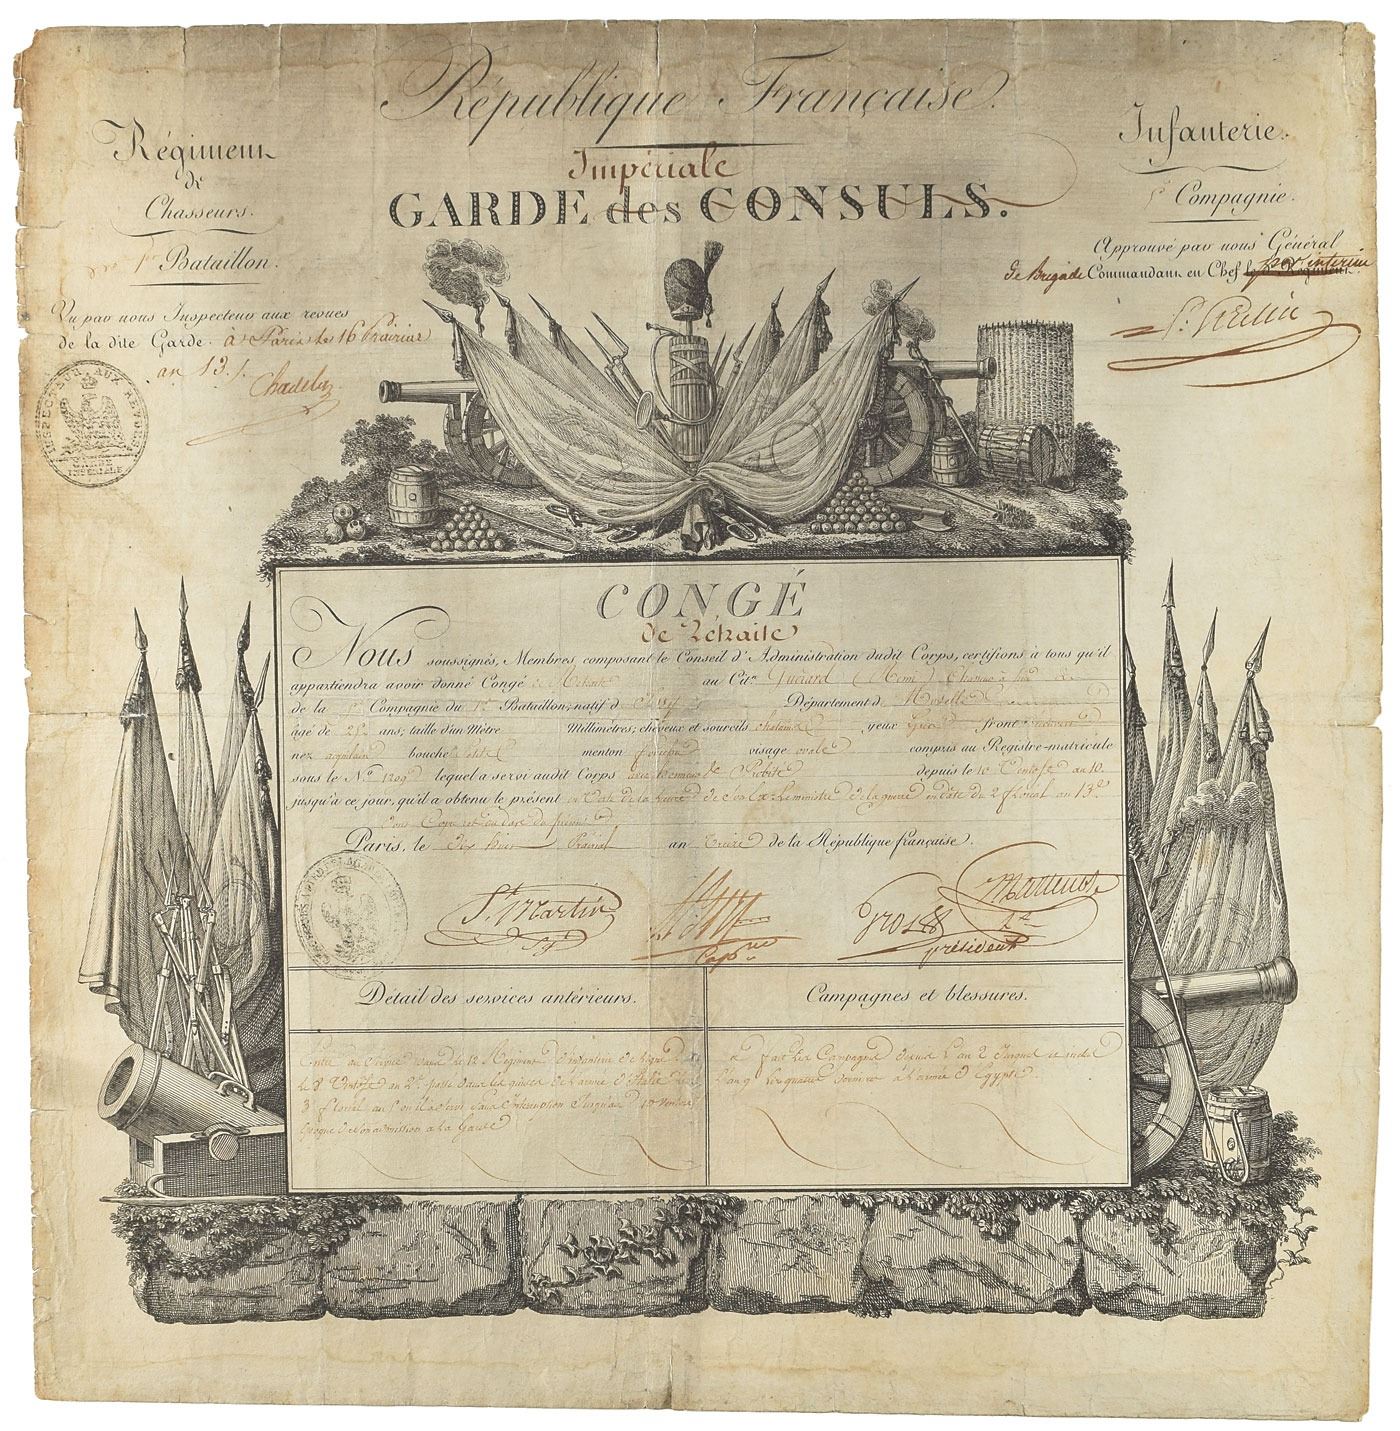 République Française.
Régiment
de
Chasseurs.
1er Bataillon.
Impériale
GARDE des CONSULS.
Infanterie.
Compagnie.
Vu par nous Inspecteur aux revues
de la dite Garde. à Paris le 16 Prairial
an 13.
Chadelas
INSPECTEUR AUX REVUES
GARDE
IMPERIALE
Approuvé par nous Général
de Brigade Commandant en Chef par interim
CONGÉ
de Rétraite
Nous soussignés, Membres composant le Conseil d'Administration dudit Corps, certifions à tous qu'il
appartiendra avoir donné Congé de Retraite au Citen. Guérard (Remi) Chasseur à pied
de la Compagnie du 1er Bataillon; natif d Département d Moselle
âgé de ans; taille d'un Mètre Millimètres; cheveux et sourcils chatains yeux front
nez aquilain bouche menton visage ovale compris au Registre-matricule
sous le No. 1209 lequel a servi audit Corps avec honneur & Probité depuis le 10 Ventose an 10.
jusqu'à ce jour, qu'il a obtenu le présent en Vertu de la lettre de Son Ex. le ministre de la guerre en date du 2 floréal an 13
Paris, le dix huit Prairial an treize de la République française.
St. Martin
Capne
Gros
président
Détail des services antérieurs.
Campagnes et blessures.
Entré au Service dans le Régiment d'infanterie de ligne
le 8 Ventose an 2. passé dans les guides de l'armée d'Italie
3 floréal an 5 où il a servi sans Interruption Jusqu'au 10 Ventose
époque de son admission a la Garde
a fait les Campagnes depuis l'an 2 Jusques et inclus
l'an 9 les quatre dernières à l'armée d'Egypte.